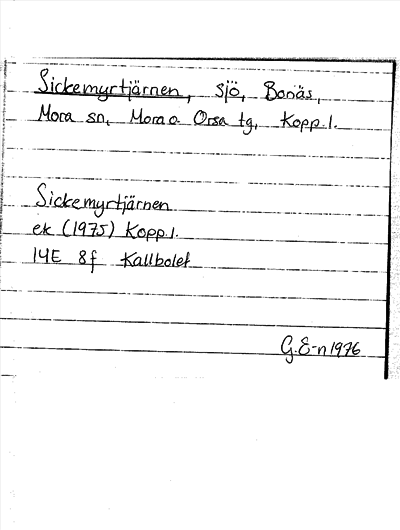 Sickemyrtjärnen, sjö, Bonäs,
Mora sn, Mora o. Orsa tg, Kopp.l.
Sickemyrtjärnen
ek (1975) Kopp.l.
14E 8f Kallbolet
G.E-n 1976